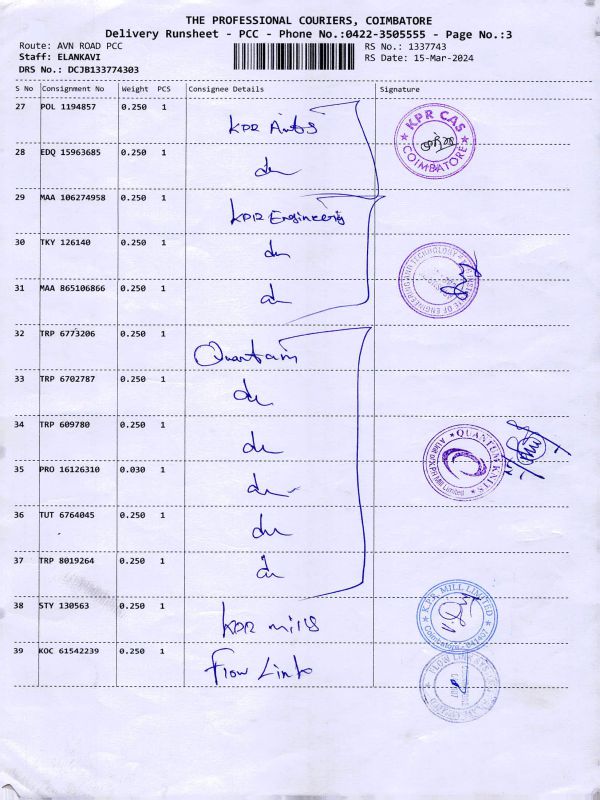 THE PROFESSIONAL COURIERS, COIMBATORE
Delivery Runsheet - PCC - Phone No.:0422-3505555 - Page No.:3
Route: AVN ROAD PCC RS No.: 1337743
Staff: ELANKAVI RS Date: 15-Mar-2024
DRS No.: DCJB133774303
S No Consignment No Weight PCS Consignee Details Signature
27 POL 1194857 0.250 1 KPR Arts
KPR CAS
COIMBATORE
28 EDQ 15963685 0.250 1 du
29 MAA 106274958 0.250 1 KPR Engineering
30 TKY 126140 0.250 1 du
INSTITUTE OF ENGINEERING AND TECHNOLOGY
31 MAA 865106866 0.250 1 du
32 TRP 6773206 0.250 1 Quantam
33 TRP 6702787 0.250 1 du
34 TRP 609780 0.250 1 du
QUANTUM KNITS
35 PRO 16126310 0.030 1 du
36 TUT 6764045 0.250 1 du
37 TRP 8019264 0.250 1 du
38 STY 130563 0.250 1 KPR mills
K.P.R. MILL LIMITED
Coimbatore - 641407
39 KOC 61542239 0.250 1 Flow Link
FLOW LINK